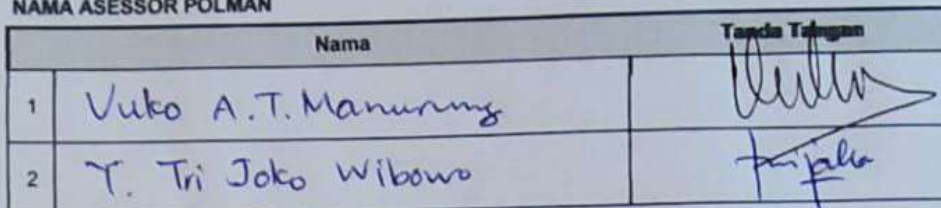 NAMA ASESSOR POLMAN
Nama Tanda Tangan
1 Vuko A.T. Manurung
2 Y. Tri Joko Wibowo